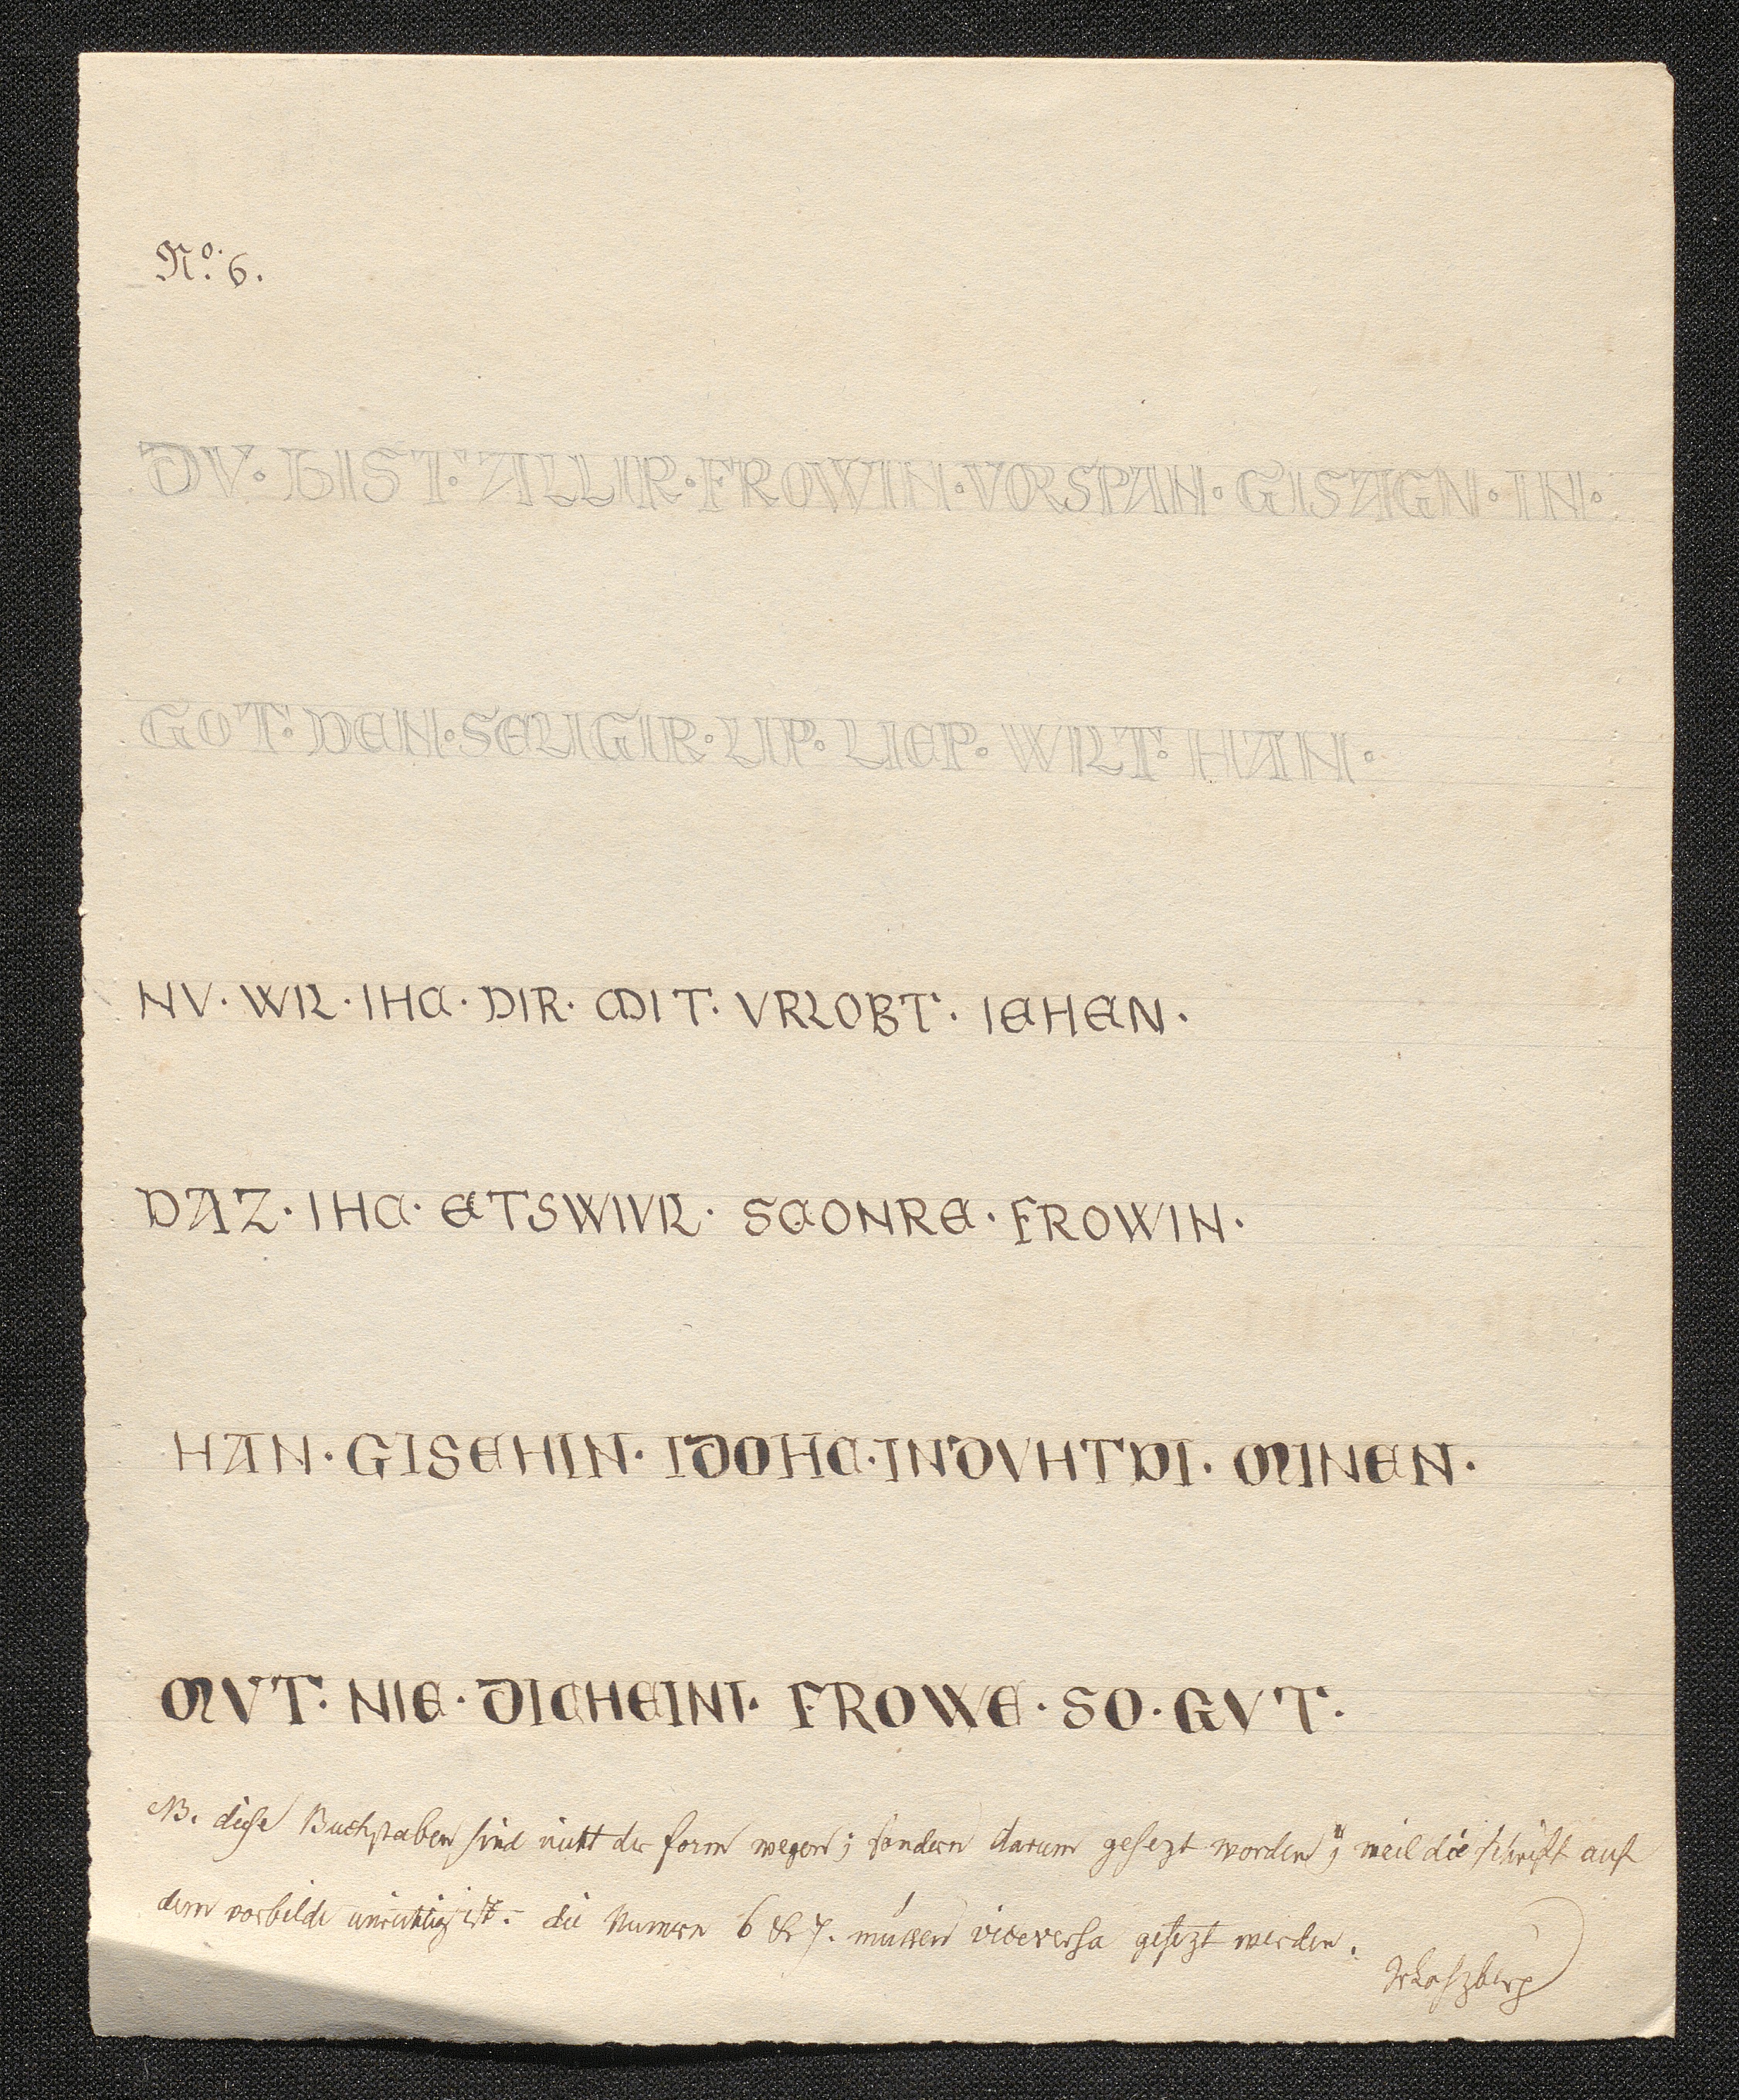 No. 6.
DV · BIST · ALLIR · FROWIN · VORSPAN · GISAGN · IN ·
GOT · DEN · SELIGIR · LIP · LIEP · WILT · HAN ·
NV · WIL · IHC · DIR · MIT · VRLOBT · IEHEN ·
DAZ · IHC · ETSWIVL · SCONRE · FROWIN ·
HAN · GISEHIN · IDOHC · INDVHTDI · MINEN ·
MVT · NIE · DICHEINI · FROWE · SO · GVT ·
NB. diese Buchstaben sind nicht der form wegen; sondern darum gesezt worden; weil die schrift auf
dem vorbilde unrichtig ist. die Numern 6 & 7. müssen viceversa gesezt werden.
JvLaszberg